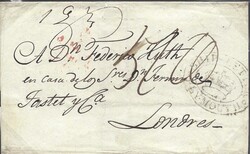 A Dn. Federico Huth
en Casa de los Sres. Dn. Fermin de
Tastet y Ca.
Londres